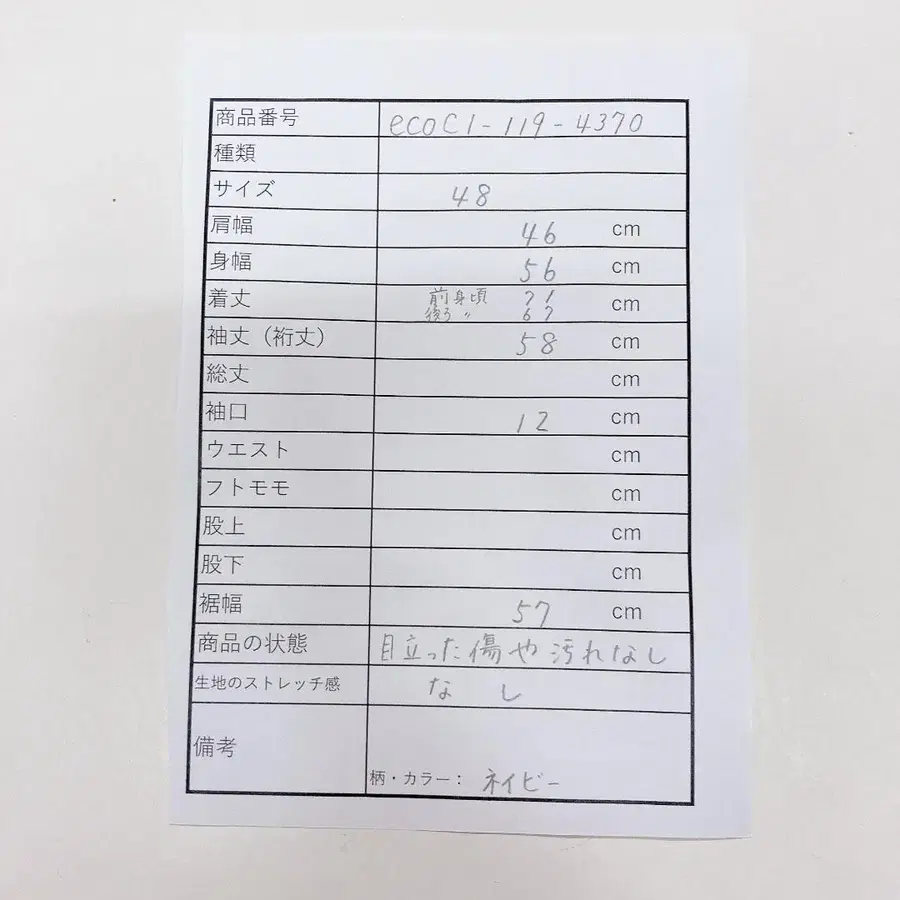 商品番号 ecoC1-119-4370
種類
サイズ 48
肩幅 46 cm
身幅 56 cm
着丈 前身頃 71 cm
後ろ 〃 67
袖丈（裄丈） 58 cm
総丈 cm
袖口 12 cm
ウエスト cm
フトモモ cm
股上 cm
股下 cm
裾幅 57 cm
商品の状態 目立った傷や汚れなし
生地のストレッチ感 なし
備考
柄・カラー： ネイビー